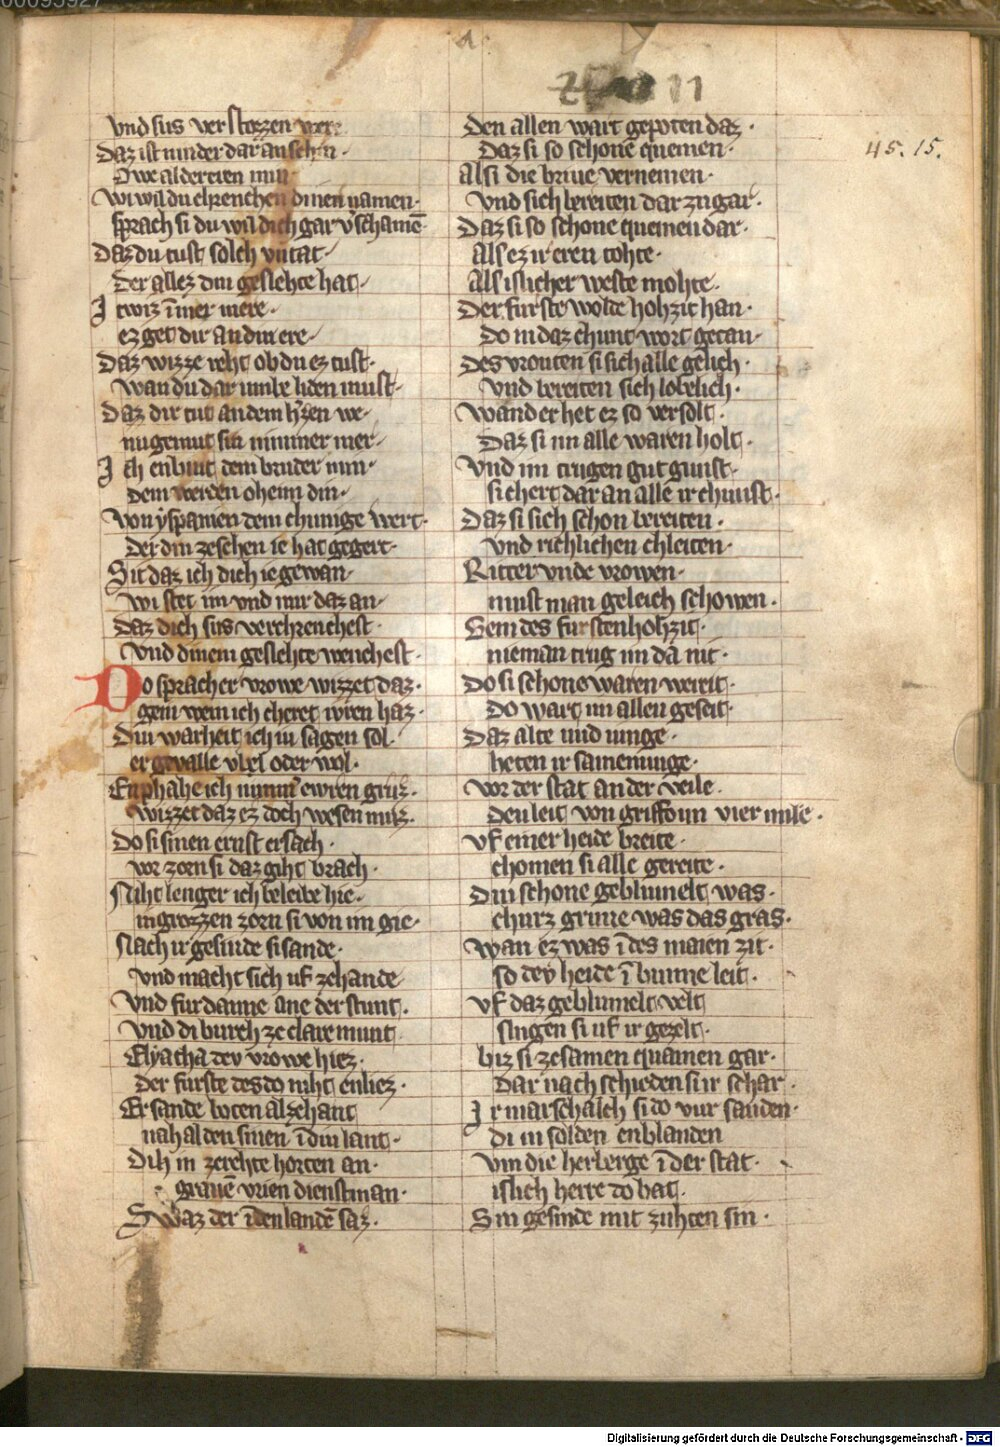 00095927
A
11
45. 15.
vnd sus verstozzen wer.
Daz ist ninder dar an schin.
Owe alder tren min
Wi wil du chrenchen dinen namen.
sprach si du wil dich gar vschamē.
Daz du tust solch vntat.
Der allez din geslehte hat.
Itwiz īmer mere.
ez get dir an din ere.
Daz wizze reht ob du ez tust.
wan du dar umbe liden must.
Daz dir tut an dem h'zen we.
nu gemut sin nimmer mer.
Ich enbiut dem bruder min.
Dem werden oheim din.
Von yspanien dem chunige wert.
Der din zesehen ie hat gegert.
Sit daz ich dich ie gewan.
wi stet im vnd mir daz an.
Daz dich sus verchrenchest.
vnd dinem geslehte wenchest.
Do sprach er vrowe wizzet daz.
gein wem ich cheret iwren haz.
Diu warheit ich iu sagen sol.
er gevalle vbel oder wol.
Enphahe ich nimm' ewren gruz.
wizzet daz ez doch wesen muz.
Do si sinen ernst ersach.
vor zorn si daz giht brach.
Niht lenger ich beleibe hie.
in grozzen zorn si von im gie.
Nach ir gesinde si sande.
vnd macht sich uf zehande
Vnd fur danne ane der stunt.
vnd di burch ze claremunt
Elyacha dev vrowe hiez.
der furste des do niht enliez.
Er sande boten alzehant
nah al den sinen ī diu lant.
Di h in zerehte horten an.
grauē vrien dienstman.
Swaz der ī den landē saz.
Den allen wart gepoten daz.
Daz si so schone quemen.
Als i die briue vernemen.
vnd sich bereiten dar zu gar.
Daz si so schone quemen dar.
als ez ir eren tohte.
Als islicher weste mohte.
Der furste wolde hohzit han.
Do in daz chunt wort getan.
Des vrouten si sich alle gelich.
vnd bereiten sich lobelich.
Wand er het ez so versolt.
Daz si im alle waren holt.
Vnd im trugen gut gunst.
si chert dar an alle ir chunst.
Daz si sich schon bereiten.
vnd richlichen chleiten.
Ritter vnde vrowen.
must man geleich schowen.
Gein des furstenhohzit.
nieman trug im da nit.
Do si schone waren wereit.
Do wart im allen geseit.
Daz alte und iunge.
heten ir sameninge.
vor der stat an der veile.
Deu leit von griffoun vier mile.
vf einer heide breite.
chomen si alle gereite.
Diu schone geblumelt was.
churz grune was das gras.
wan ez was ī des maien zit.
so dey heide ī bume leit.
vf daz geblumelt velt
slugen si uf ir gezelt.
biz si zesamen quamen gar.
Dar nach schieden si ir schar.
Ir marschalch si do vur sanden.
di in solden enblanden
vm die herberge ī der stat.
islich herre do bat.
Sin gesinde mit zuhten sin.
Digitalisierung gefördert durch die Deutsche Forschungsgemeinschaft - DFG